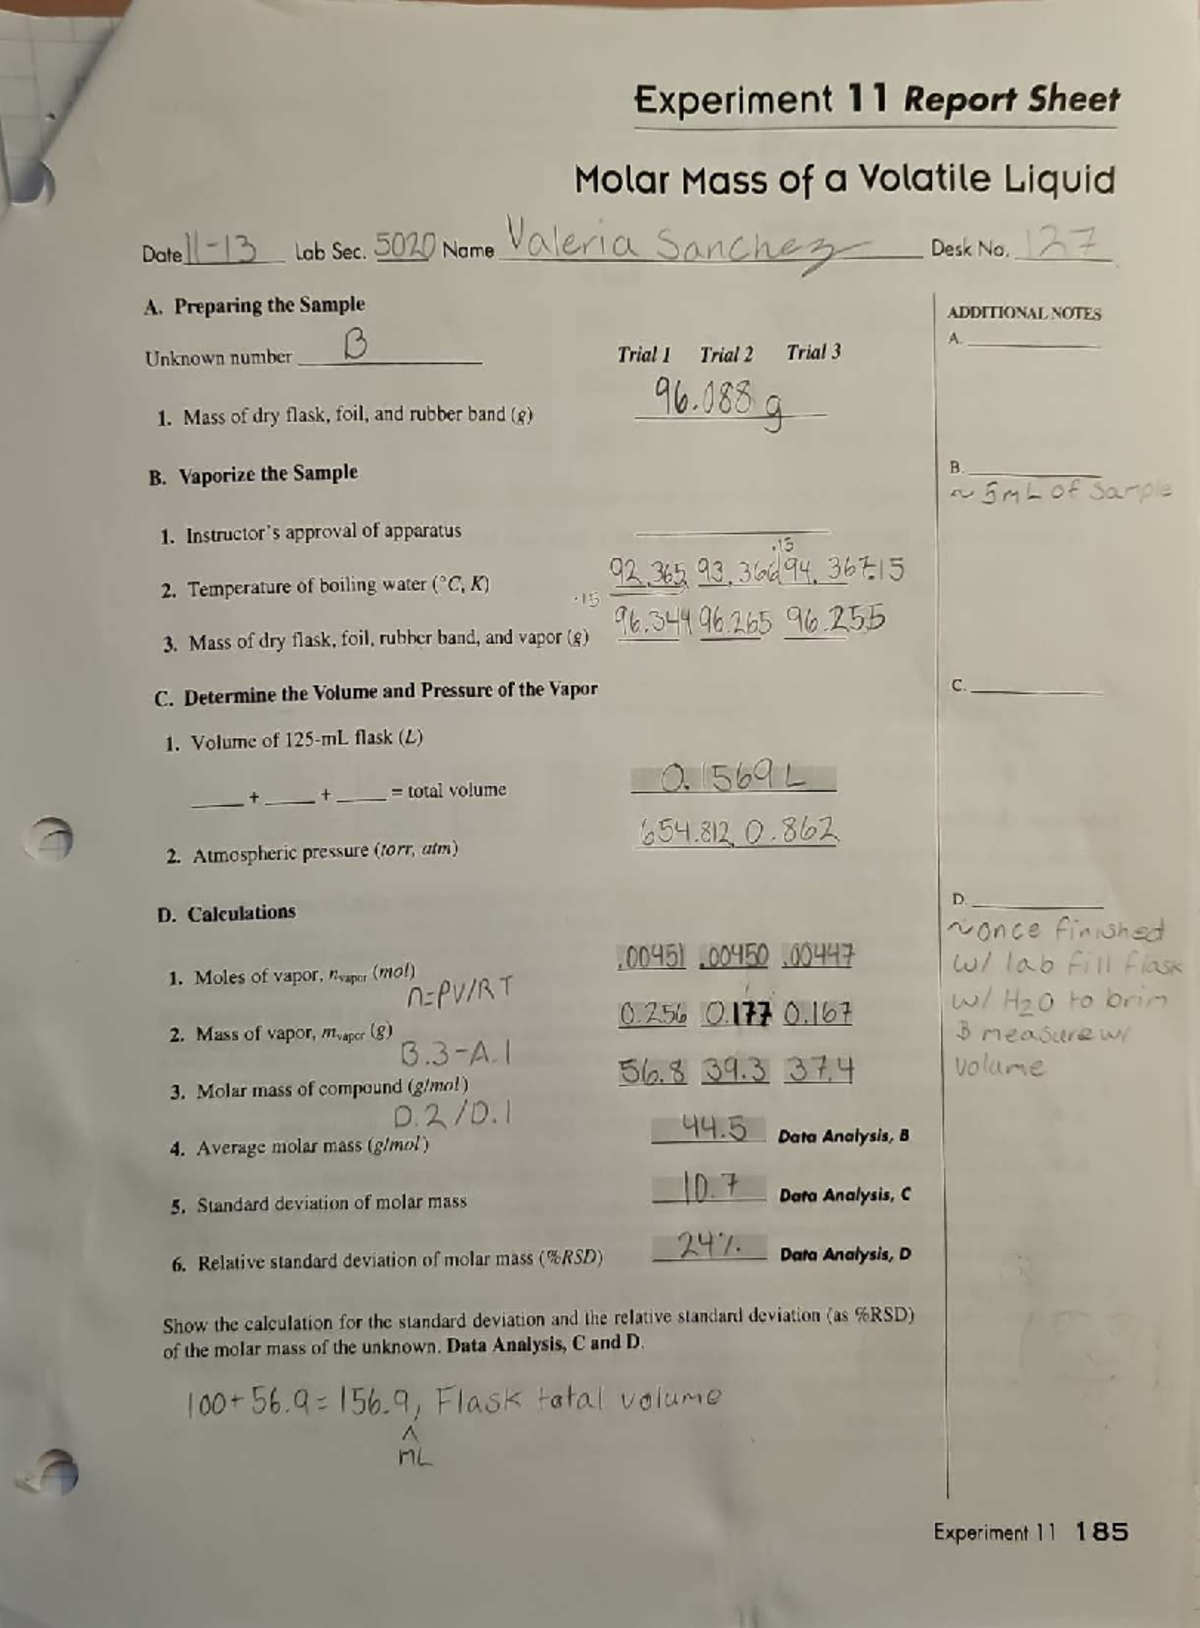 Experiment 11 Report Sheet
Molar Mass of a Volatile Liquid
Date 11-13 Lab Sec. 5020 Name Valeria Sanchez Desk No. 127
A. Preparing the Sample
ADDITIONAL NOTES
A.
Unknown number B
Trial 1 Trial 2 Trial 3
1. Mass of dry flask, foil, and rubber band (g) 96.088 g
B. Vaporize the Sample
B.
~ 5mL of sample
1. Instructor's approval of apparatus
.15
2. Temperature of boiling water (°C, K) 92, 365, 93, 366 94, 367.15
.15
3. Mass of dry flask, foil, rubber band, and vapor (g) 96.344 96.265 96.255
C. Determine the Volume and Pressure of the Vapor
C.
1. Volume of 125-mL flask (L)
+ + = total volume 0.1569 L
2. Atmospheric pressure (torr, atm) 654.812, 0.862
D. Calculations
D.
~once finished
w/ lab fill flask
w/ H2O to brim
& measure w/
volume
1. Moles of vapor, nvapor (mol) .00451 .00450 .00447
n=PV/RT
2. Mass of vapor, mvapor (g) 0.256 0.177 0.167
B.3-A.1
3. Molar mass of compound (g/mol) 56.8 39.3 37.4
D.2/D.1
4. Average molar mass (g/mol) 44.5 Data Analysis, B
5. Standard deviation of molar mass 10.7 Data Analysis, C
6. Relative standard deviation of molar mass (%RSD) 24% Data Analysis, D
Show the calculation for the standard deviation and the relative standard deviation (as %RSD)
of the molar mass of the unknown. Data Analysis, C and D.
100+56.9=156.9, Flask total volume
^
mL
Experiment 11 185